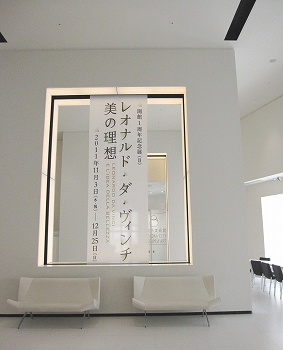 開館1周年記念展
レオナルド・ダ・ヴィンチ
美の理想
LEONARDO DA VINCI
E L'IDEA DELLA BELLEZZA
2011年11月3日(木・祝)―12月25日(日)